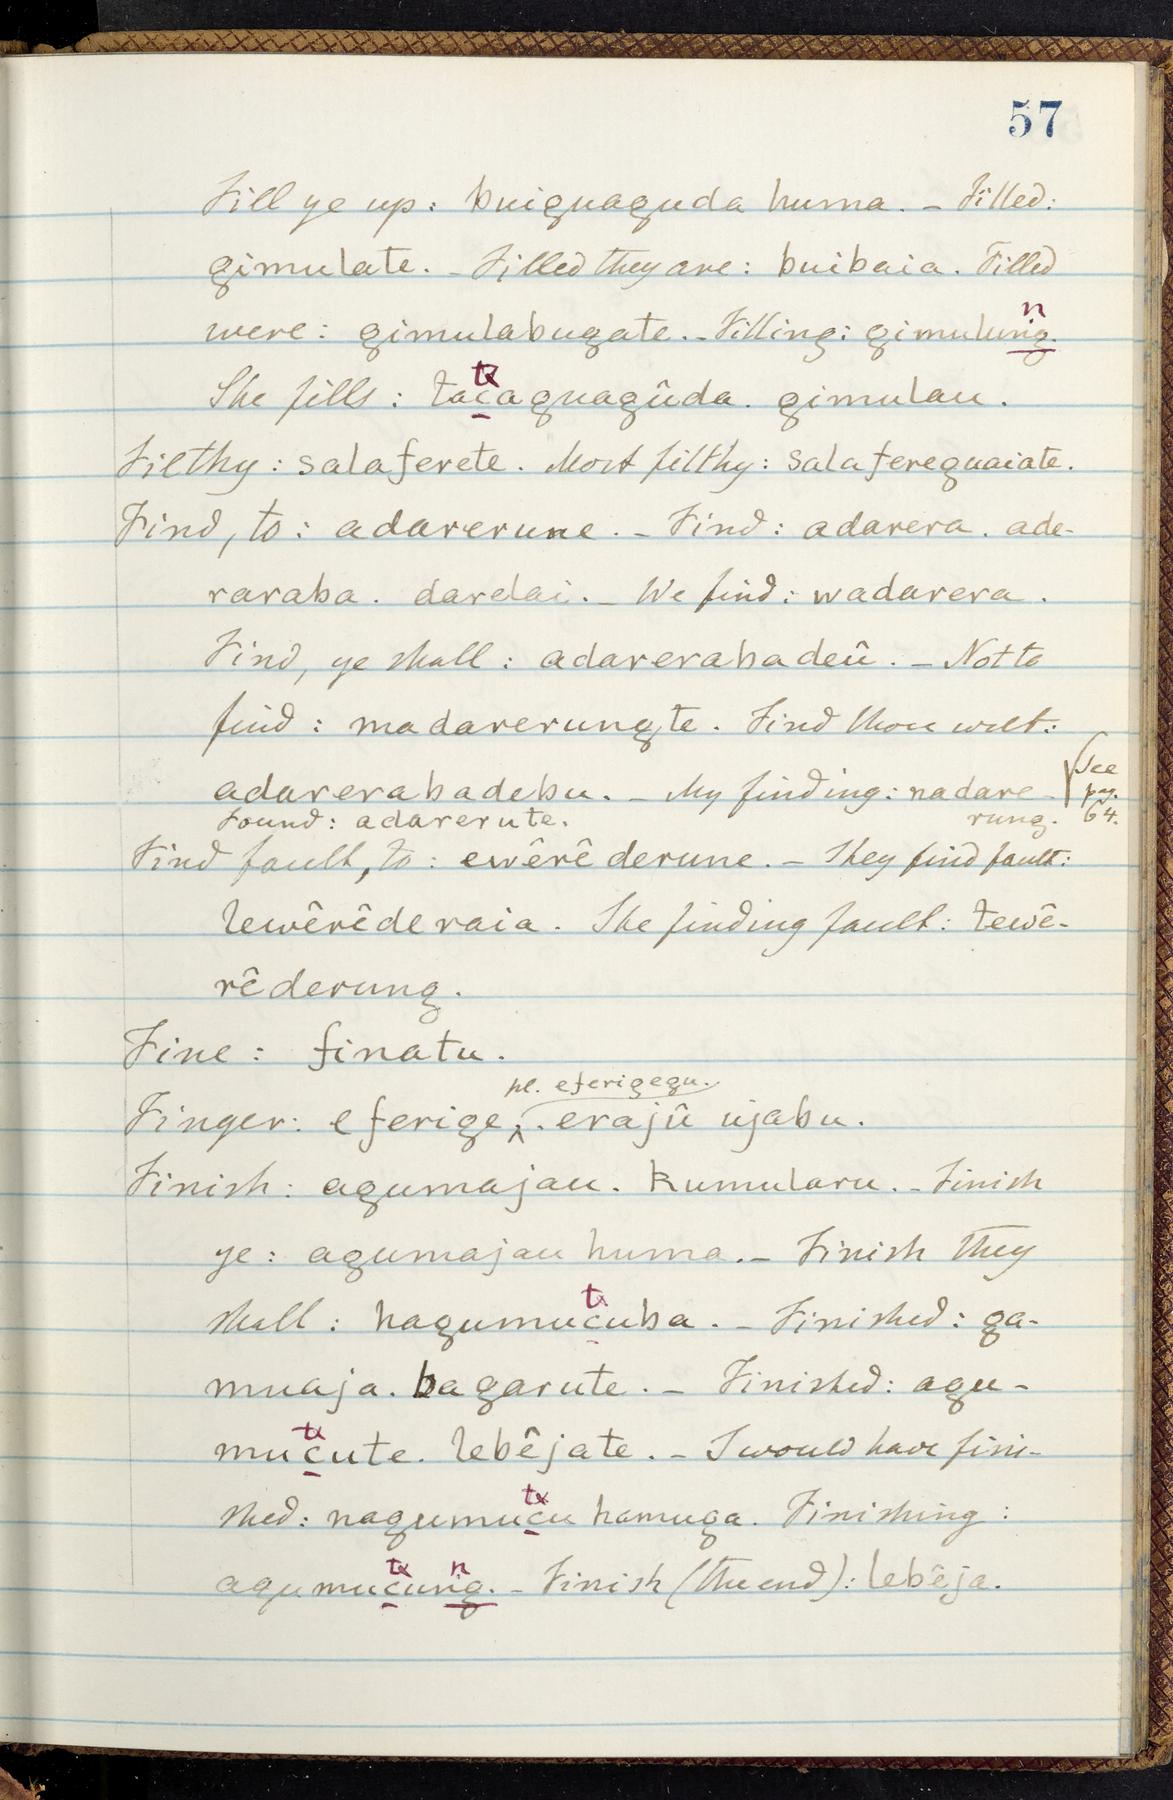 57
Fill ye up: buiguaguda huma. – Filled:
gimulate. – Filled they are: buibaia. Filled
were: gimulabugate. – Filling: gimulung.
n
She fills: tacaguagûda. gimulau.
tx
Filthy: salaferete. Most filthy: salafereguaiate.
Find, to: adarerune. – Find: adarera. ade-
raraba. darelai. – We find: wadarera.
Find, ye shall: adarerabadeû. – Not to
find: madarerungte. Find thou wilt:
adarerabadebu. – My finding: nadare-
rung.
(See
pg.
64.
Found: adarerute.
Find fault, to: ewêrêderune. – They find fault:
lewêrêderaia. She finding fault: tewê-
rêderung.
Fine: finatu.
pl. eferigegu.
Finger: eferige. erajû ujabu.
Finish: agumajau. kumularu. – Finish
ye: agumajau huma. – Finish they
shall: hagumucuba. – Finished: ga-
tx
muaja. bagarute. – Finished: agu-
mucute. lebêjate. – I would have fini-
tx
shed: nagumucu hamuga. Finishing:
tx
agumucung. – Finish (the end): lebêja.
tx n